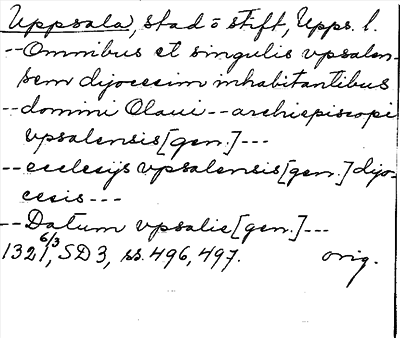 Uppsala, stad o stift, Upps. l.
--Omnibus et singulis vpsalen-
sem dijocesim inhabitantibus
--domini Olaui--archiepiscopi
vpsalensis[gen.]---
--ecclesijs vpsalensis[gen.] dijo-
cesis---
--Datum vpsalie[gen.]---
1321 6/3, SD3, ss. 496, 497. orig.